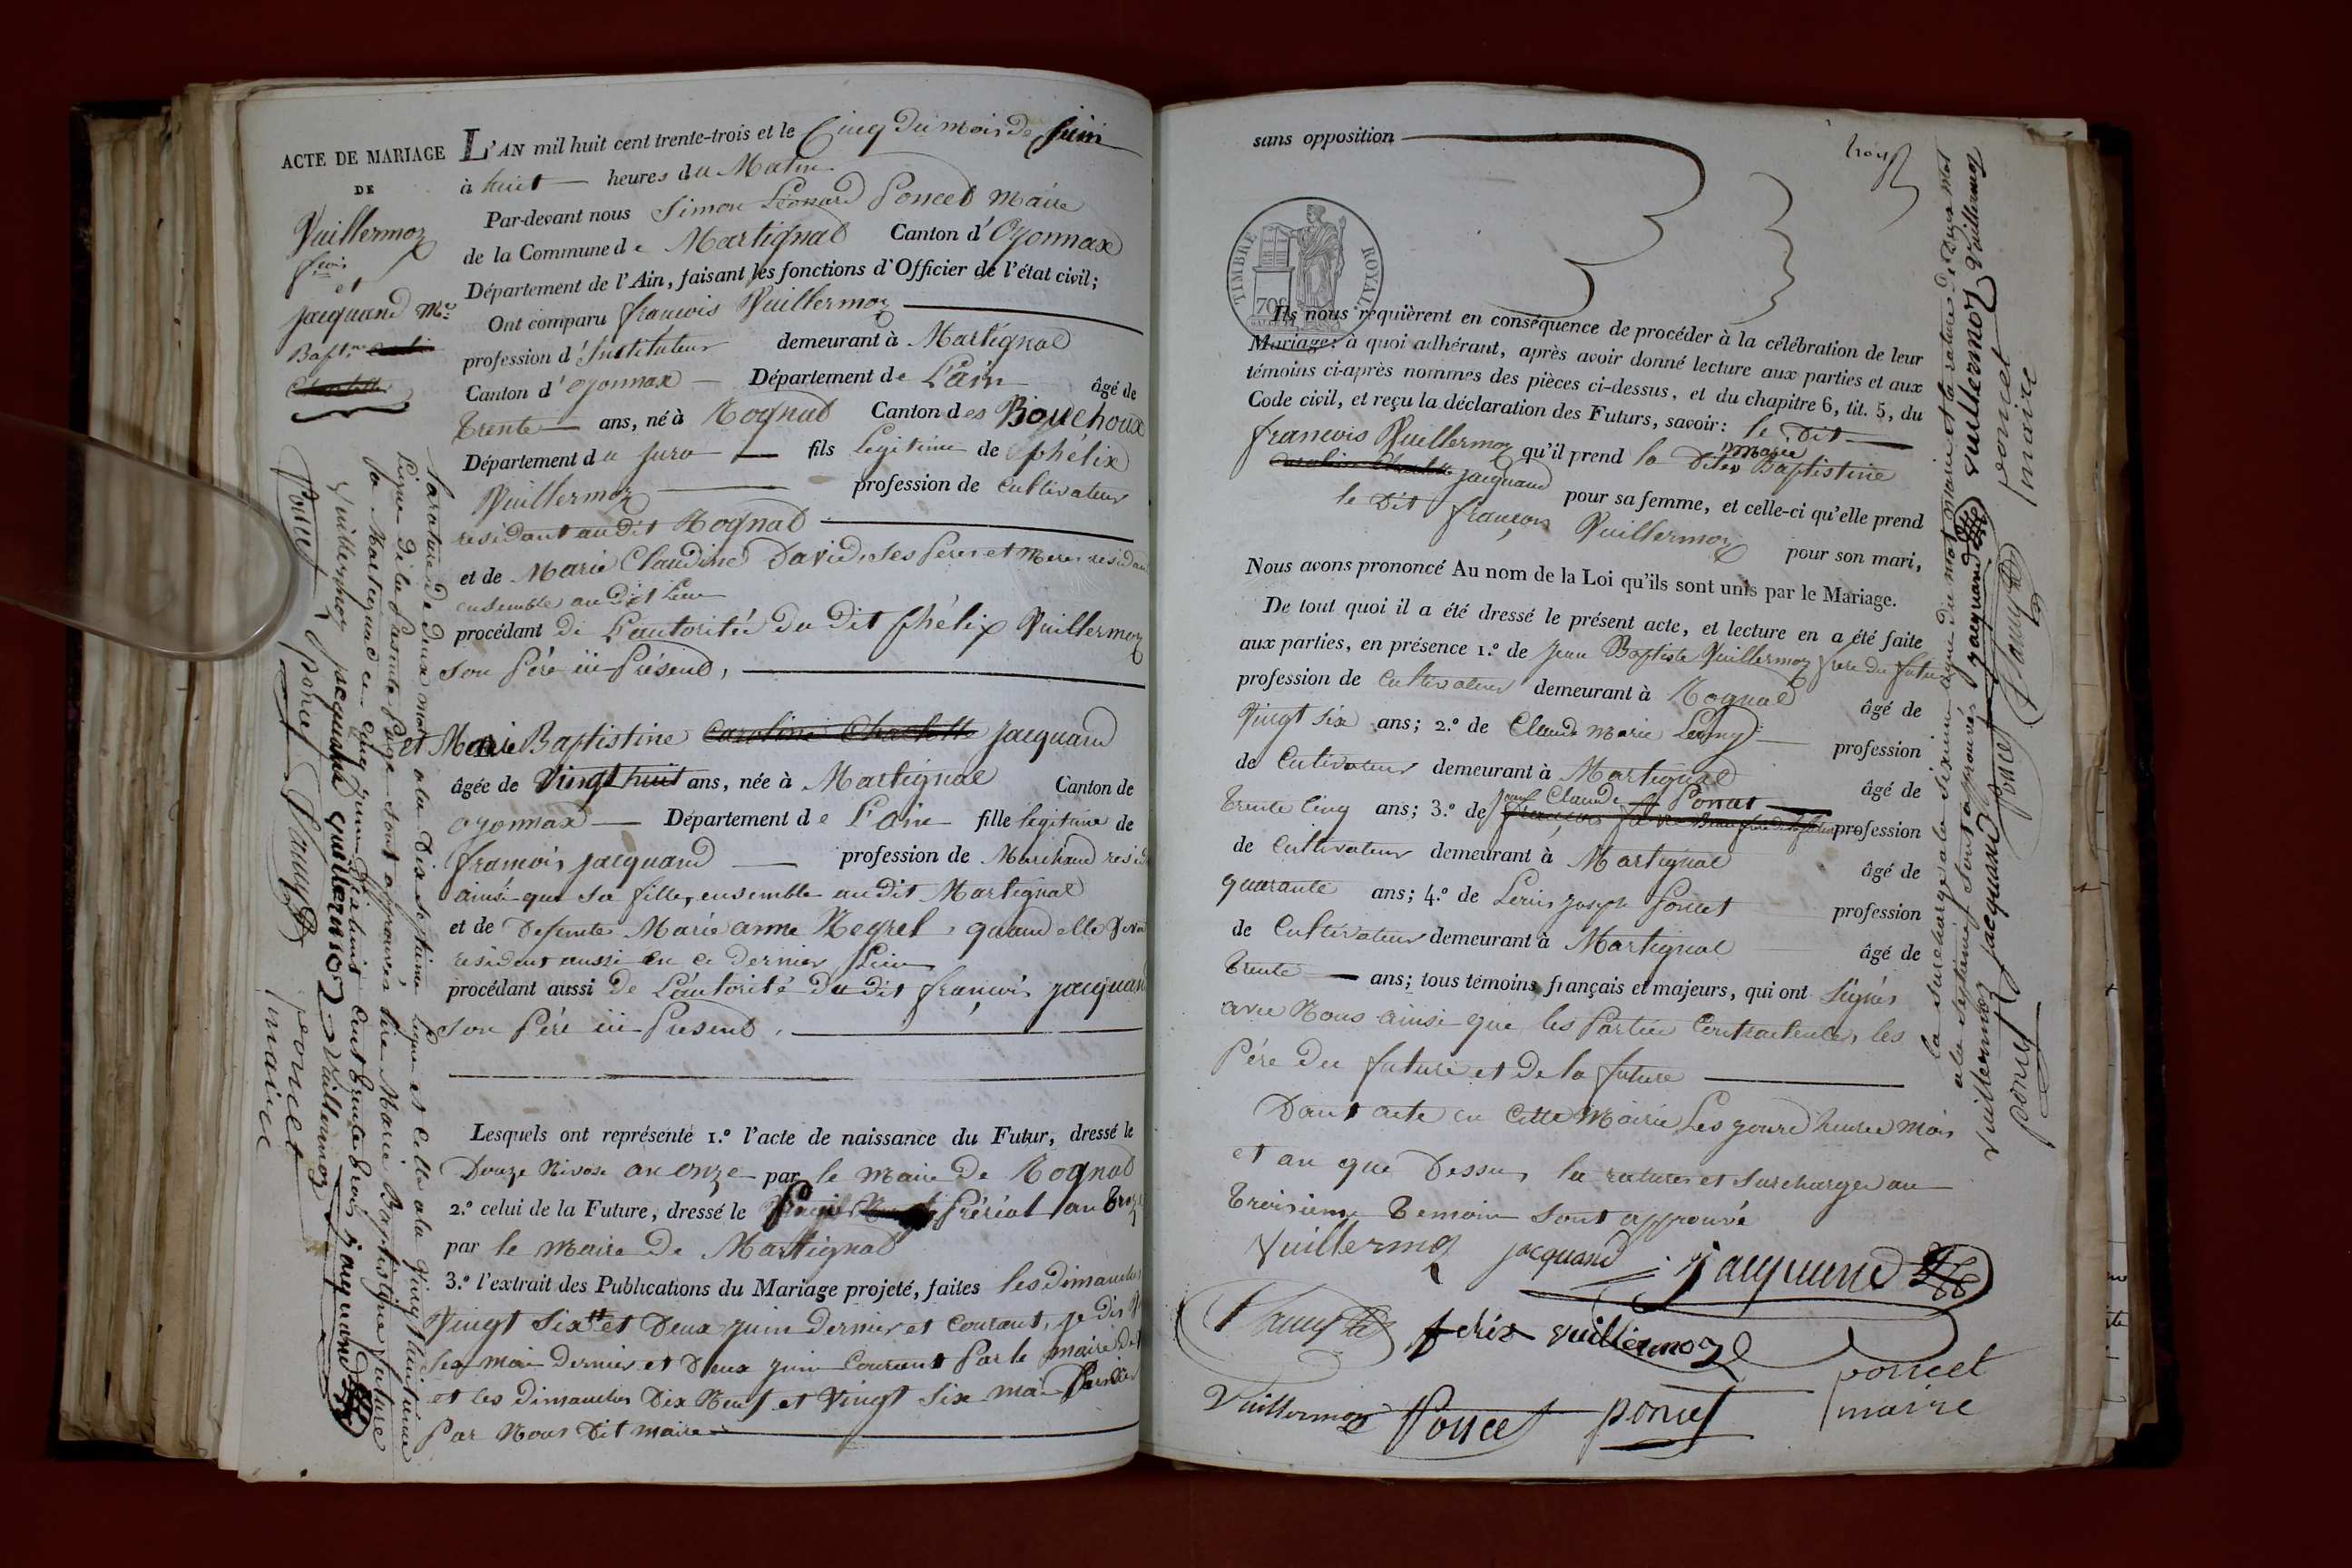 ACTE DE MARIAGE
DE
Vuillermoz
f.cois
et
jacquand M.e
Bapt.ne
L'AN mil huit cent trente-trois et le Cinq du mois de juin
à huit heures du Matin
Par-devant nous Simon Léonard Poncet Maire
de la Commune de Martignat Canton d'Oyonnax
Département de l'Ain, faisant les fonctions d'Officier de l'état civil;
Ont comparu francois Vuillermoz
profession d'Instituteur demeurant à Martignat
Canton d'oyonnax Département de L'ain âgé de
trente ans, né à Rognat Canton des Bouchoux
Département du jura fils légitime de phélix
Vuillermoz profession de cultivateur
résidant audit Rognat
et de Marie Claudine David, ses Père et Mere, residant
ensemble audit Lieu
procédant de L'autorité du dit phélix Vuillermoz
son Père ici Présent,
et Marie Baptistine Caroline Charlotte jacquand
âgée de Vingt huit ans, née à Martignat Canton de
oyonnax Département de L'ain fille légitime de
francois jacquand profession de Marchand resid
ainsi que sa fille, ensemble audit Martignat
et de Defunte Marie anne Neyret, quand elle Viva
résident aussi en ce dernier Lieu
procédant aussi de L'autorité du dit françois jacquand
son Père ici Présent.
Lesquels ont représenté 1.º l'acte de naissance du Futur, dressé le
Douze Nivose an onze par le maire de Rognat
2.º celui de la Future, dressé le Préréal an trez
par le maire de Martignat
3.º l'extrait des Publications du Mariage projeté, faites les dimanches
Vingt Six et Deux juin dernier et courant, je dis V
six mai dernier et Deux juin courant Par le maire de
et les dimanches Dix Neuf et Vingt Six mai Dernier
Par Nous Dit maire
La rature de deux mot a la Dix septieme Ligne et celle a la Vingt huitieme
Ligne de la Presente Page sont approuvés dire Marie Baptistine future
a Martignat ce cinq juin Dix huit Cent trente trois jacquand
Vuillermoz jacquand vuillermoz Vuillermoz
Poncet poncet poncet
maire
sans opposition
trois
TIMBRE ROYAL
70c
Ils nous requièrent en conséquence de procéder à la célébration de leur
Mariage: à quoi adhérant, après avoir donné lecture aux parties et aux
témoins ci-après nommes des pièces ci-dessus, et du chapitre 6, tit. 5, du
Code civil, et reçu la déclaration des Futurs, savoir: le Dit
francois Vuillermoz qu'il prend la Dite Marie Baptistine
Caroline Charlotte jacquand pour sa femme, et celle-ci qu'elle prend
le Dit françois Vuillermoz pour son mari,
Nous avons prononcé Au nom de la Loi qu'ils sont unis par le Mariage.
De tout quoi il a été dressé le présent acte, et lecture en a été faite
aux parties, en présence 1.º de jean Baptiste Vuillermoz frere du futur
profession de Cultivateur demeurant à Rognat âgé de
Vingt Six ans; 2.º de Claude Marie profession
de Cultivateur demeurant à Martignat âgé de
trente Cinq ans; 3.º de Claude Poncet profession
de Cultivateur demeurant à Martignat âgé de
quarante ans; 4.º de Louis joseph Poncet profession
de Cultivateur demeurant à Martignat âgé de
trente ans; tous témoins français et majeurs, qui ont Signés
avec Nous ainsi que les Parties Contractentes, les
Père du future et de la future
Dont acte en Cette Mairie Les jour heure mois
et an que Dessus, la rature et surcharge au
troisieme temoin sont approuvé
Vuillermoz jacquand jacquand
felix vuillermoz poncet
Vuillermoz Poncet poncet maire
la surcharge a la sixieme ligne du mot marie et la rature de Deux mot
a la septieme sont approuvés jacquand vuillermoz Vuillermoz
Vuillermoz jacquand poncet poncet
poncet maire